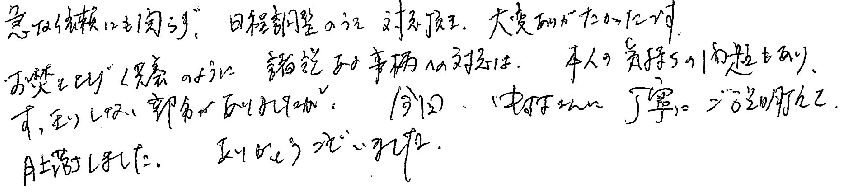 急な依頼にも関らず、日程調整のうえ対応頂き、大変ありがたかったです。
お焚き上げ供養のように諸説ある事柄への対応は、本人の気持ちの問題もあり、
すっきりしない部分がありましたが、今回、さんに丁寧にご説明頂いて、
腑に落ちました。ありがとうございました。